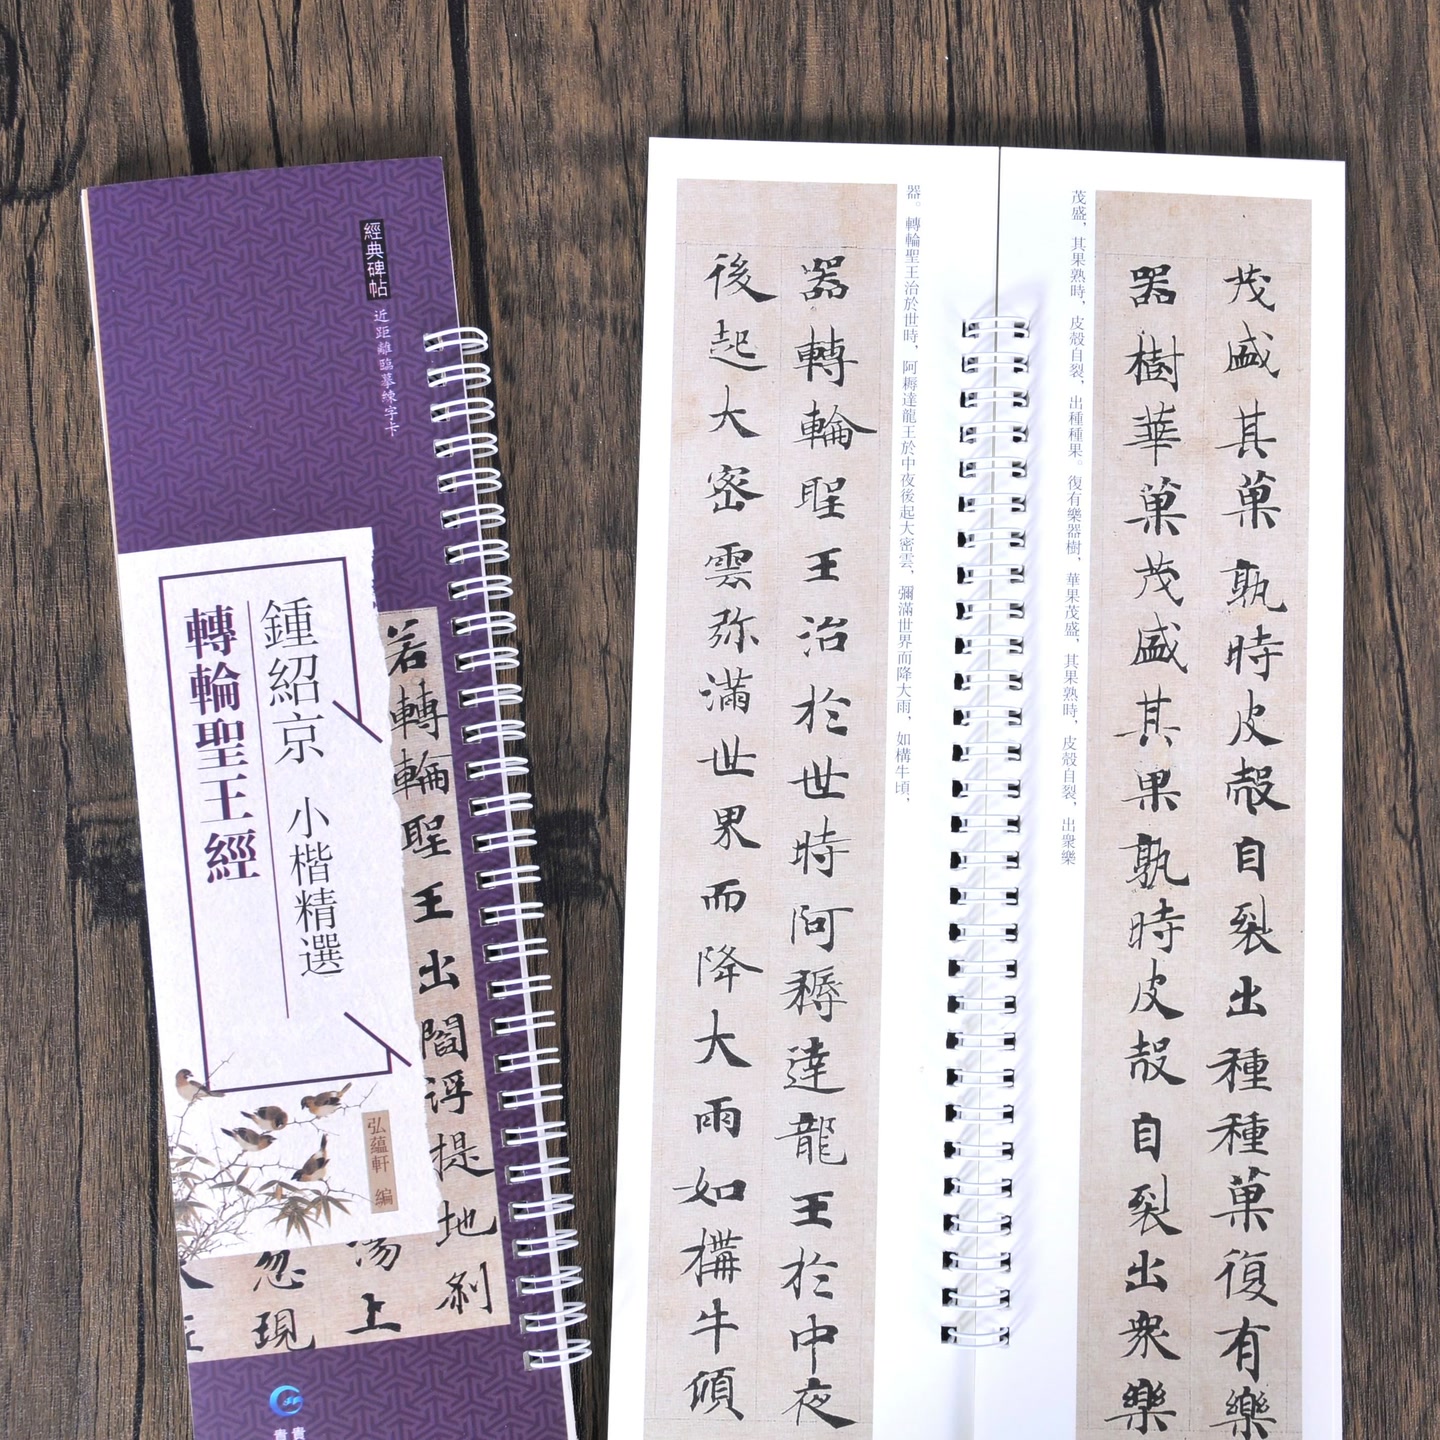 經典碑帖
近距離臨摹練字卡
鍾紹京 小楷精選
轉輪聖王經
弘蘊軒 編
若轉輪聖王出閻浮提地剎
上
忽現
茂盛其菓孰時皮殼自裂出種種菓復有樂
器樹華菓茂盛其果孰時皮殼自裂出衆樂
茂盛，其果熟時，皮殼自裂，出種種果。復有樂器樹，華果茂盛，其果熟時，皮殼自裂，出衆樂
器。轉輪聖王治於世時，阿耨達龍王於中夜後起大密雲，彌滿世界而降大雨，如構牛頃，
器轉輪聖王治於世時阿耨達龍王於中夜
後起大密雲弥滿世界而降大雨如構牛頃